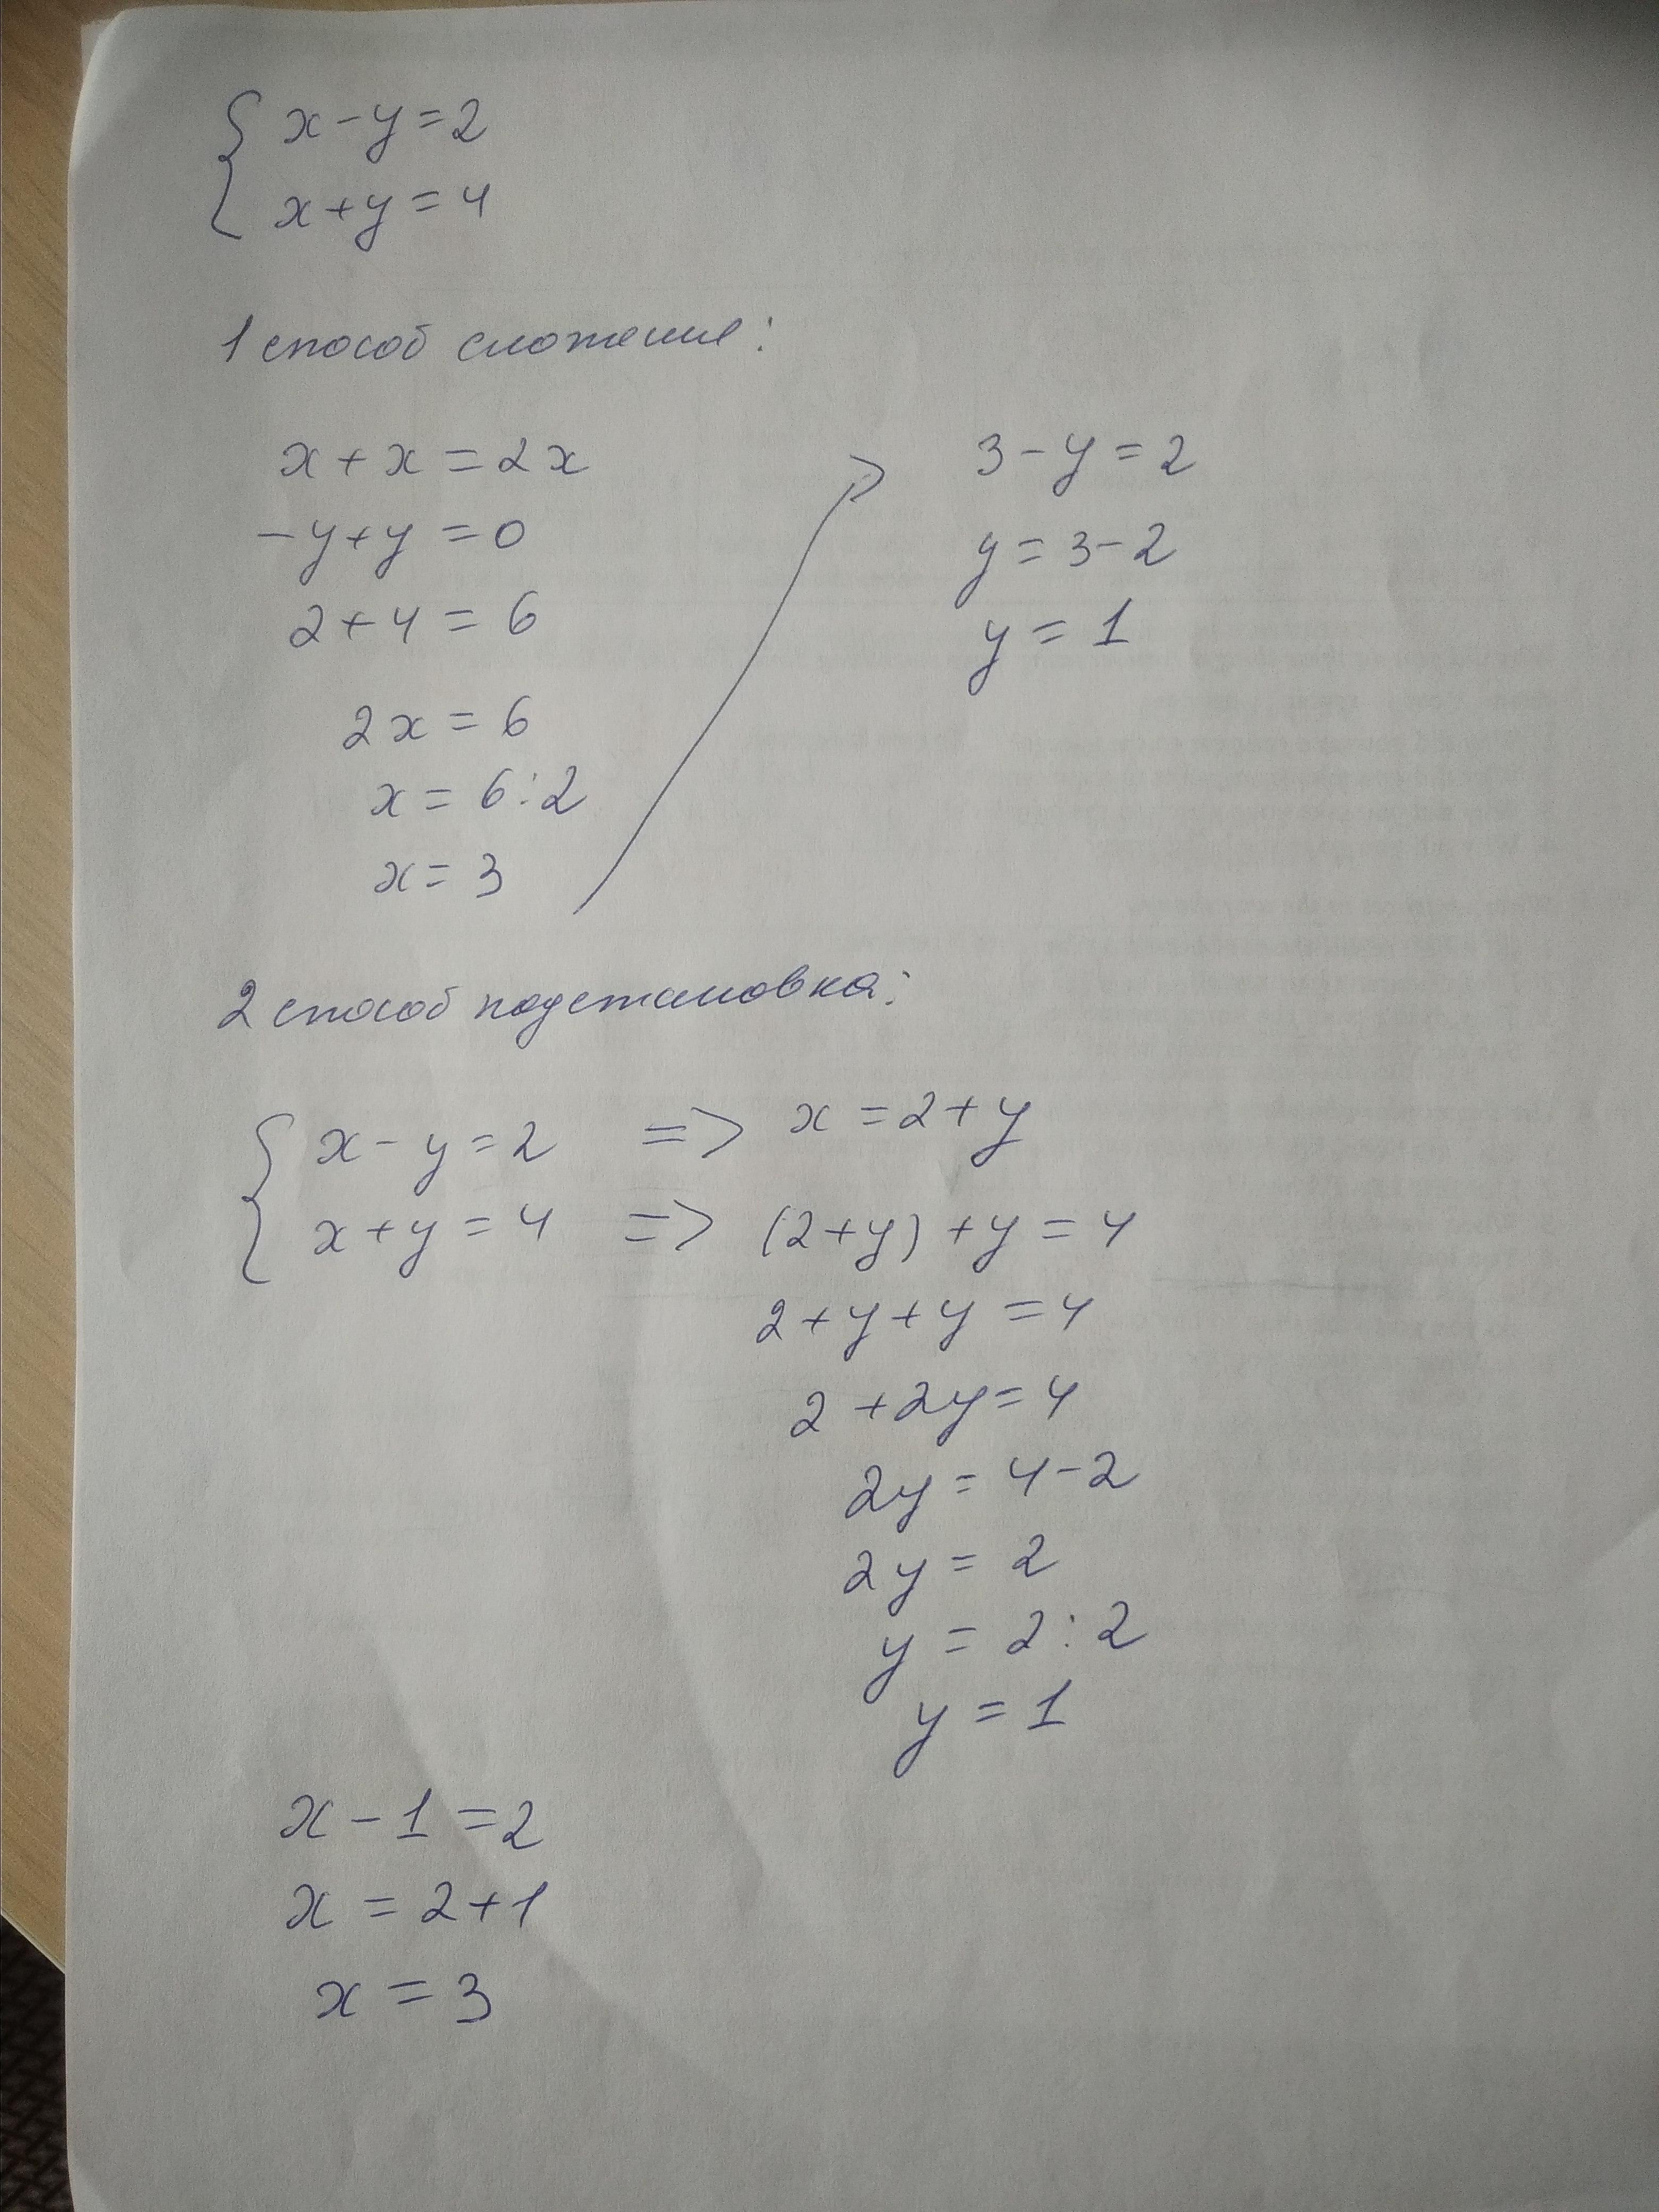 { x - y = 2
x + y = 4
1 способ сложение:
x + x = 2x
- y + y = 0
2 + 4 = 6
2x = 6
x = 6 : 2
x = 3
3 - y = 2
y = 3 - 2
y = 1
2 способ подстановка:
{ x - y = 2 => x = 2 + y
x + y = 4 => (2 + y) + y = 4
2 + y + y = 4
2 + 2y = 4
2y = 4 - 2
2y = 2
y = 2 : 2
y = 1
x - 1 = 2
x = 2 + 1
x = 3